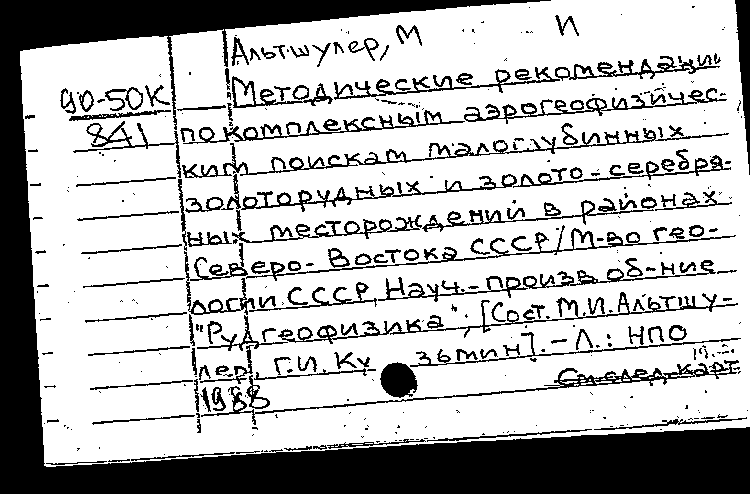 Альтшулер, М И
90-50К
841
Методические рекомендации
по комплексным аэрогеофизичес-
ким поискам малоглубинных
золоторудных и золото-серебря-
ных месторождений в районах
Северо-Востока СССР/М-во гео-
логии СССР, Науч.-произв об-ние
"Рудгеофизика"; [Сост. М.И. Альтшу-
лер, Г.И. Ку зьмин]. - Л.: НПО
См. след. карт
1988